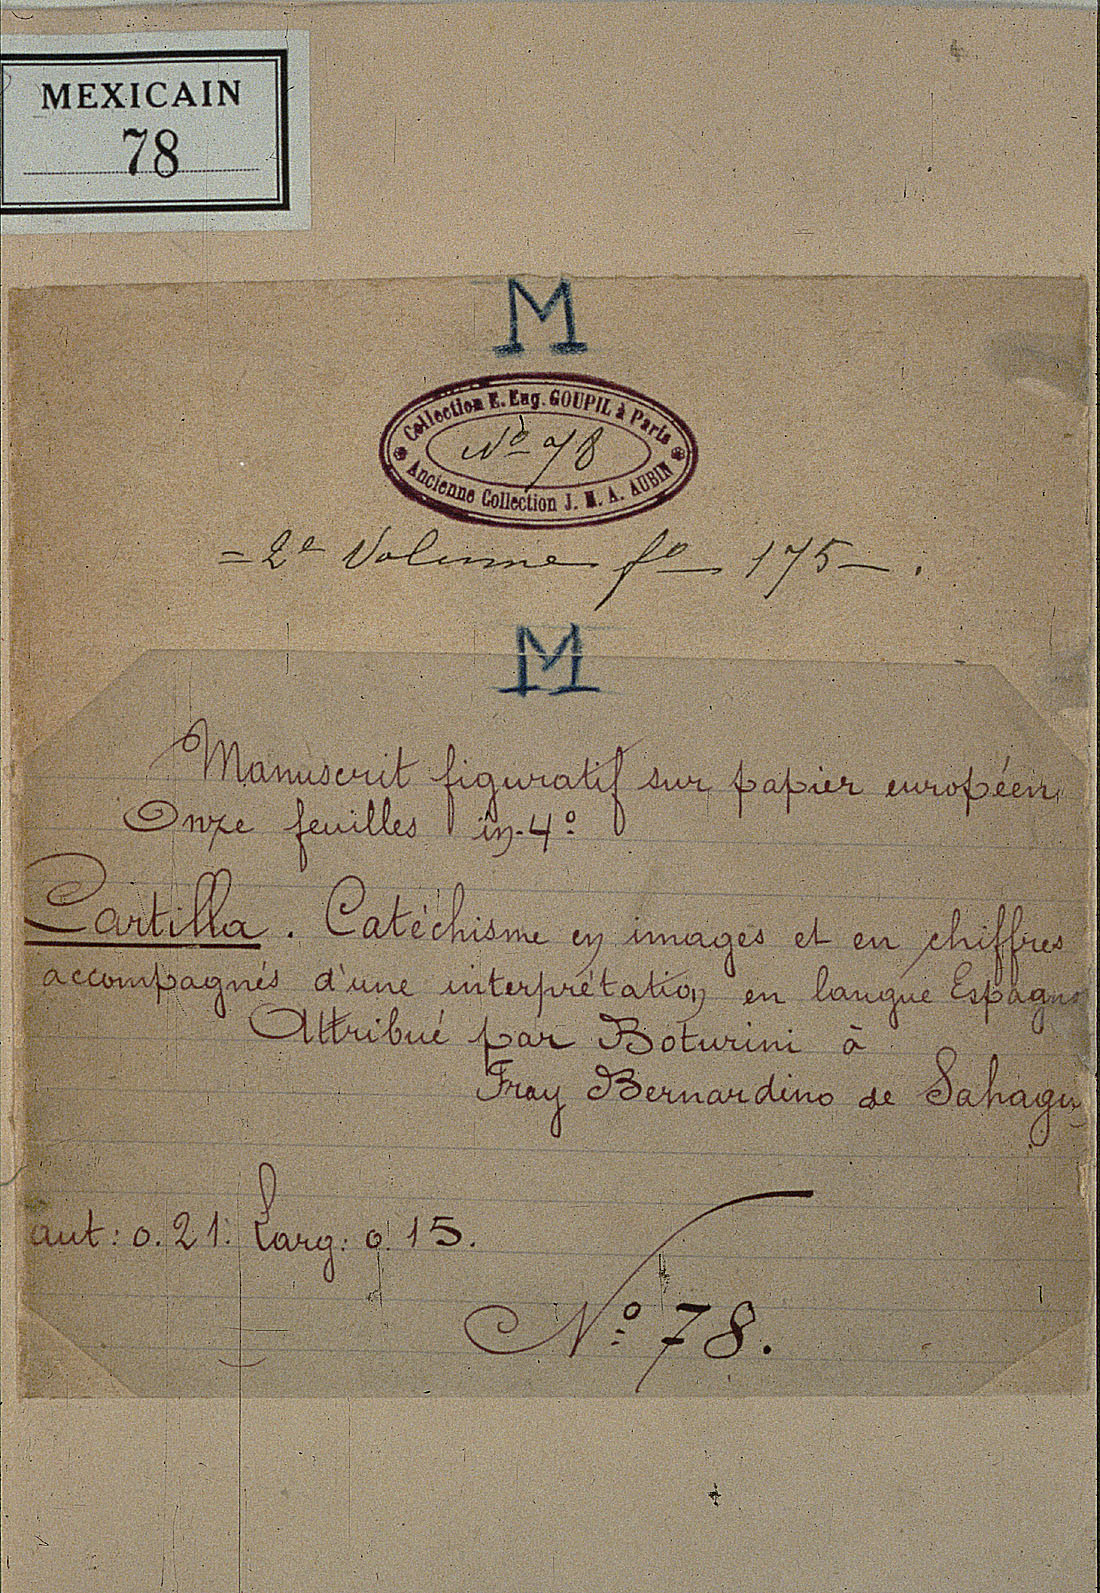 MEXICAIN
78
M
Collection E. Eug. GOUPIL à Paris
Nº 78
Ancienne Collection J. M. A. AUBIN
= 2e Volume fo 175 — .
M
Manuscrit figuratif sur papier européen,
Onze feuilles in-4º
Cartilla. Catéchisme en images et en chiffres
accompagnés d'une interprétation en langue Espagno
Attribué par Boturini à
Fray Bernardino de Sahagu
aut: 0.21. Larg: 0.15.
Nº 78.